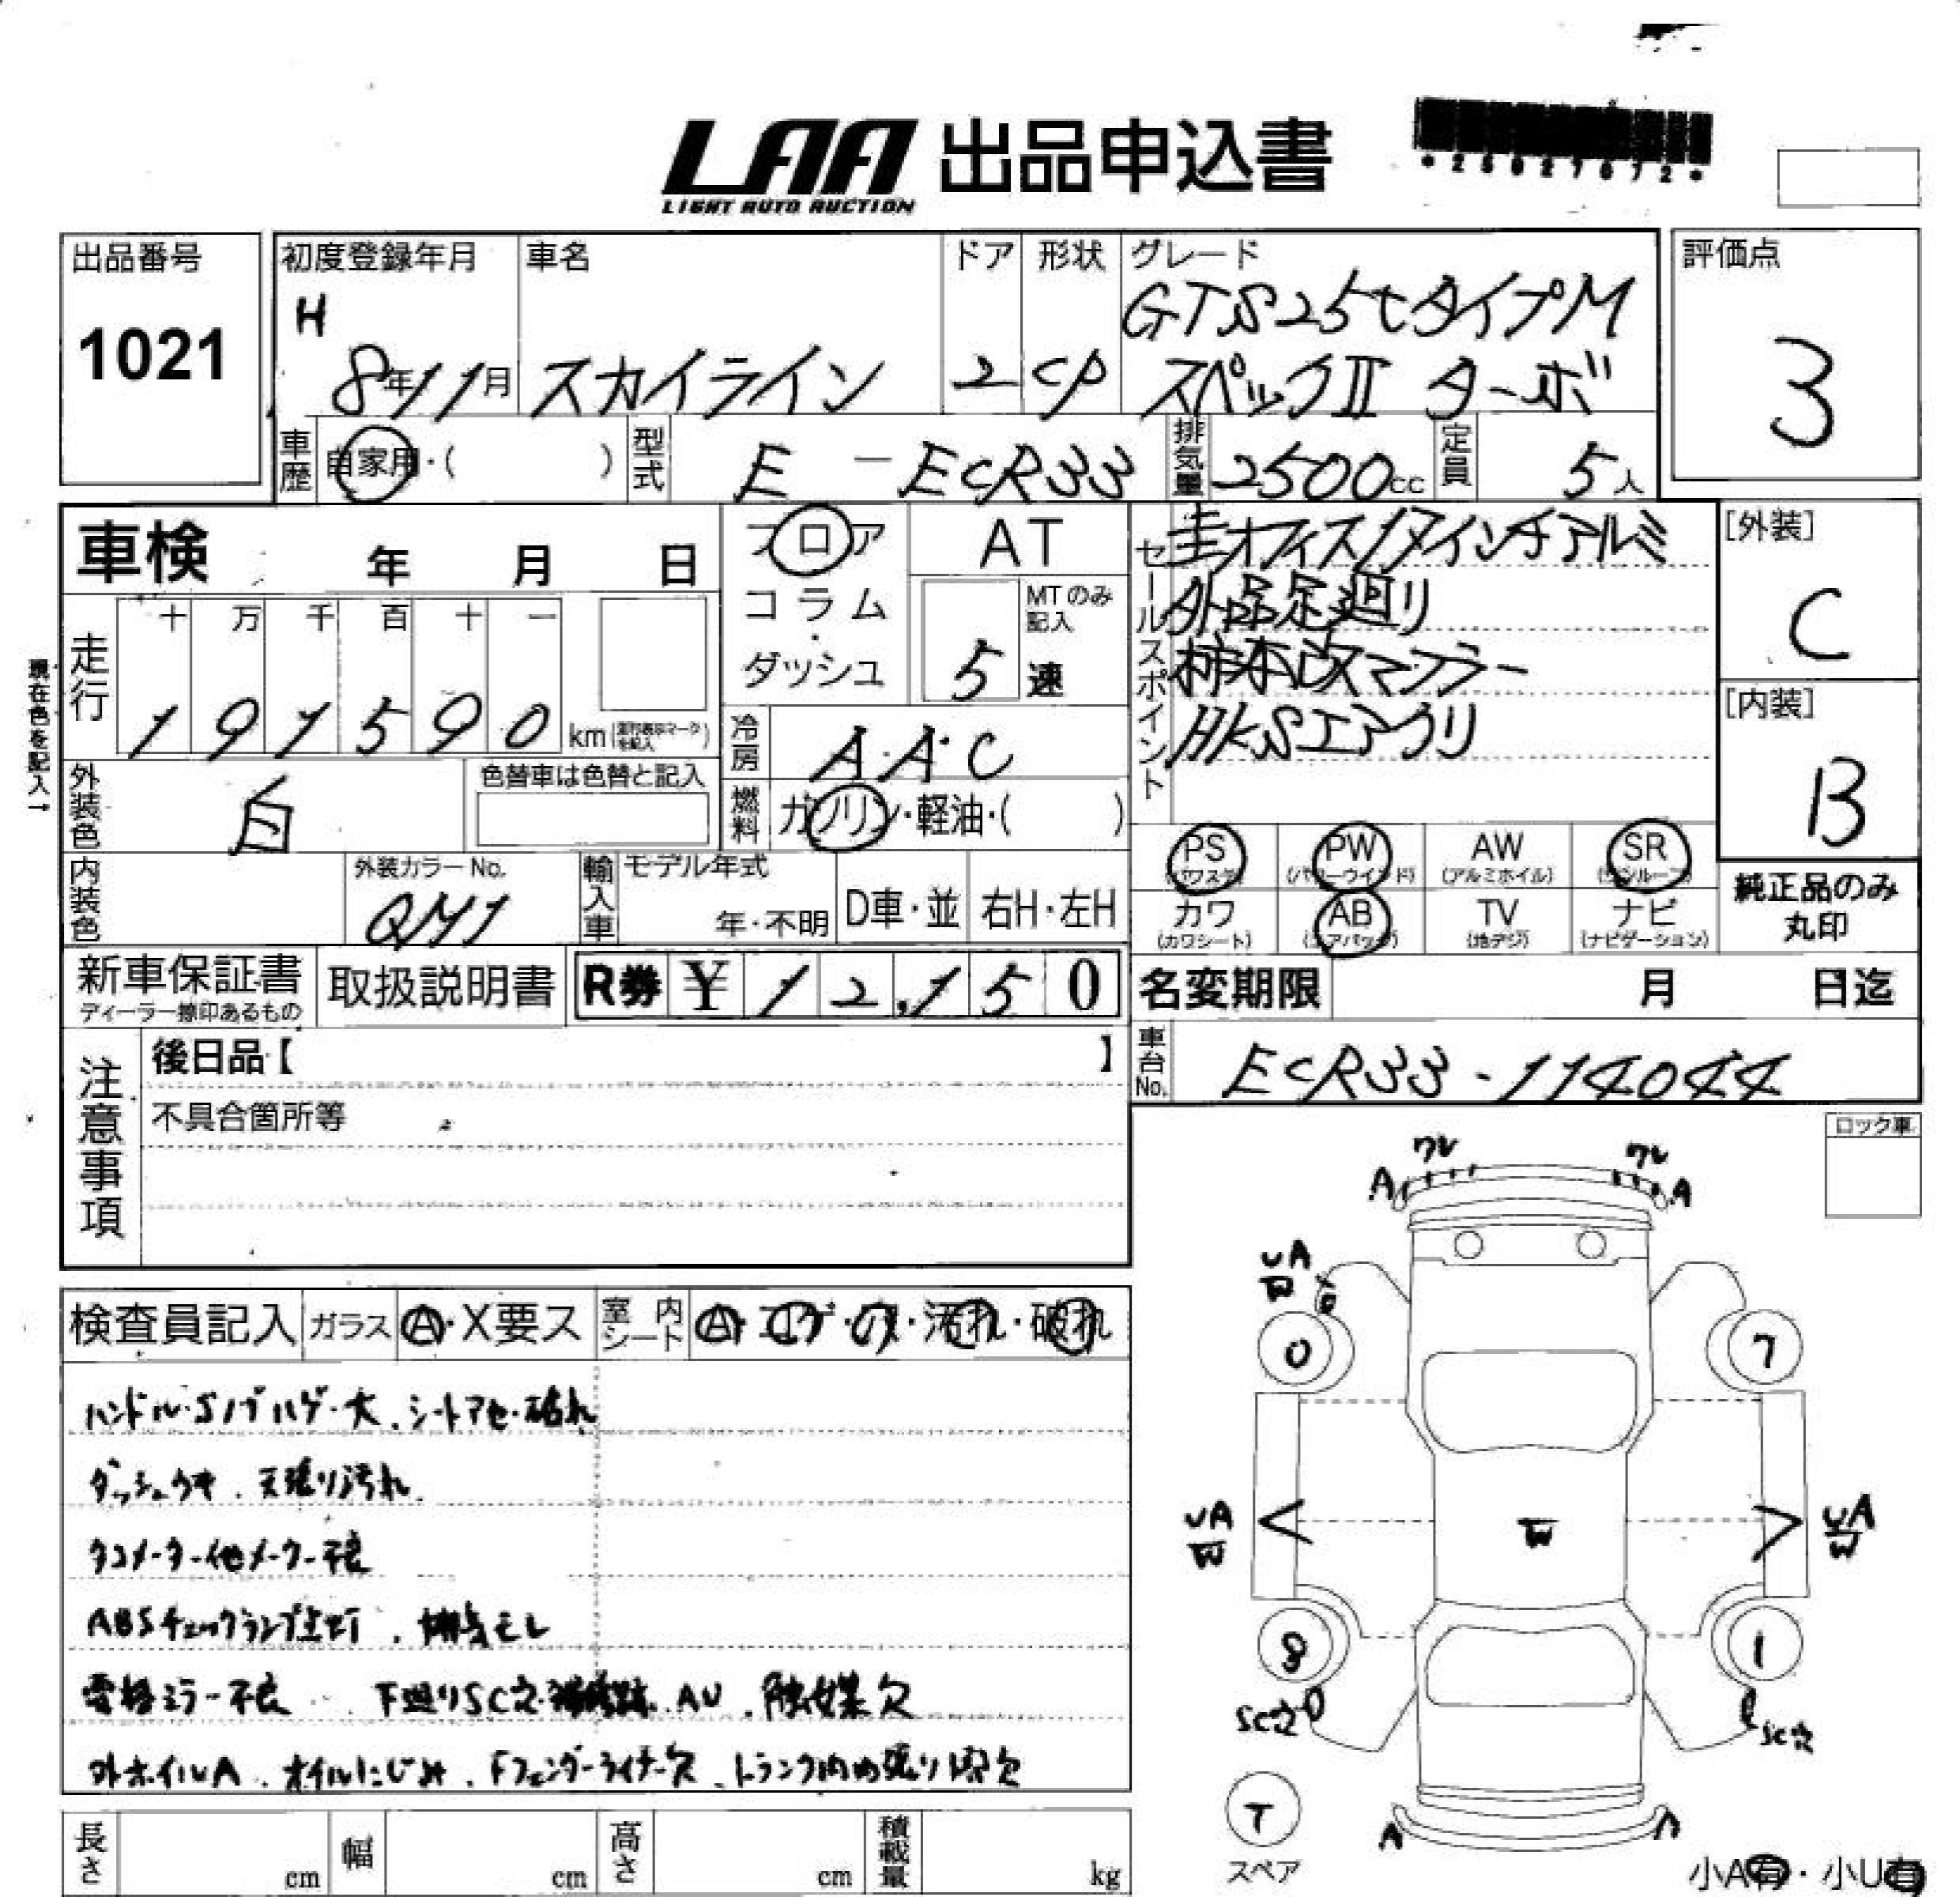 LAA 出品申込書
LIGHT AUTO AUCTION
*25827072*
出品番号
1021
初度登録年月
H
8年11月
車名
スカイライン
ドア
2
形状
CP
グレード
GTS25tタイプM
スペックII ターボ
評価点
3
車歴
自家用・( )
型式
E － ECR33
排気量
2500cc
定員
5人
車検 年 月 日
フロア
コラム
・
ダッシュ
AT
MTのみ
記入
5 速
セールスポイント
17インチアルミ
外品足廻り
柿本改マフラー
HKSエアクリ
[外装]
C
[内装]
B
現在色を記入→
走行
十 万 千 百 十 一
1 9 1 5 9 0 km
冷房
A・A・C
外装色
白
色替車は色替と記入
燃料
ガソリン・軽油・( )
PS PW AW SR
(パワステ) (パワーウインド) (アルミホイル) (サンルーフ)
カワ AB TV ナビ
(カワシート) (エアバック) (地デジ) (ナビゲーション)
純正品のみ
丸印
内装色
外装カラーNo.
QM1
輸入車
モデル年式
年・不明
D車・並
右H・左H
新車保証書
ディーラー捺印あるもの
取扱説明書
R券 ¥ 12,150
名変期限 月 日迄
注意事項
後日品【 】
不具合箇所等
車台No.
ECR33-114044
ロック車
ワレ ワレ
A A
UA
W
0 7
UA
W
W
UA
W
8 1
SC穴
SC穴
T
スペア
A A
小A有・小U有
検査員記入
ガラス
A・X要ス
室内シート
A・コゲ・のみ・汚れ・破れ
ハンドル・Sノブハゲ・大、シートアセ・破れ
ダッシュウキ、天張り汚れ
タコメーター他メーター不良
ABSチェックランプ点灯、排気モレ
電格ミラー不良 下廻りSC穴・補修跡、AU、触媒欠
外ホイルA、オイルにじみ、Fフェンダーライナー欠、トランク内内張り1部欠
長さ cm
幅 cm
高さ cm
積載量 kg